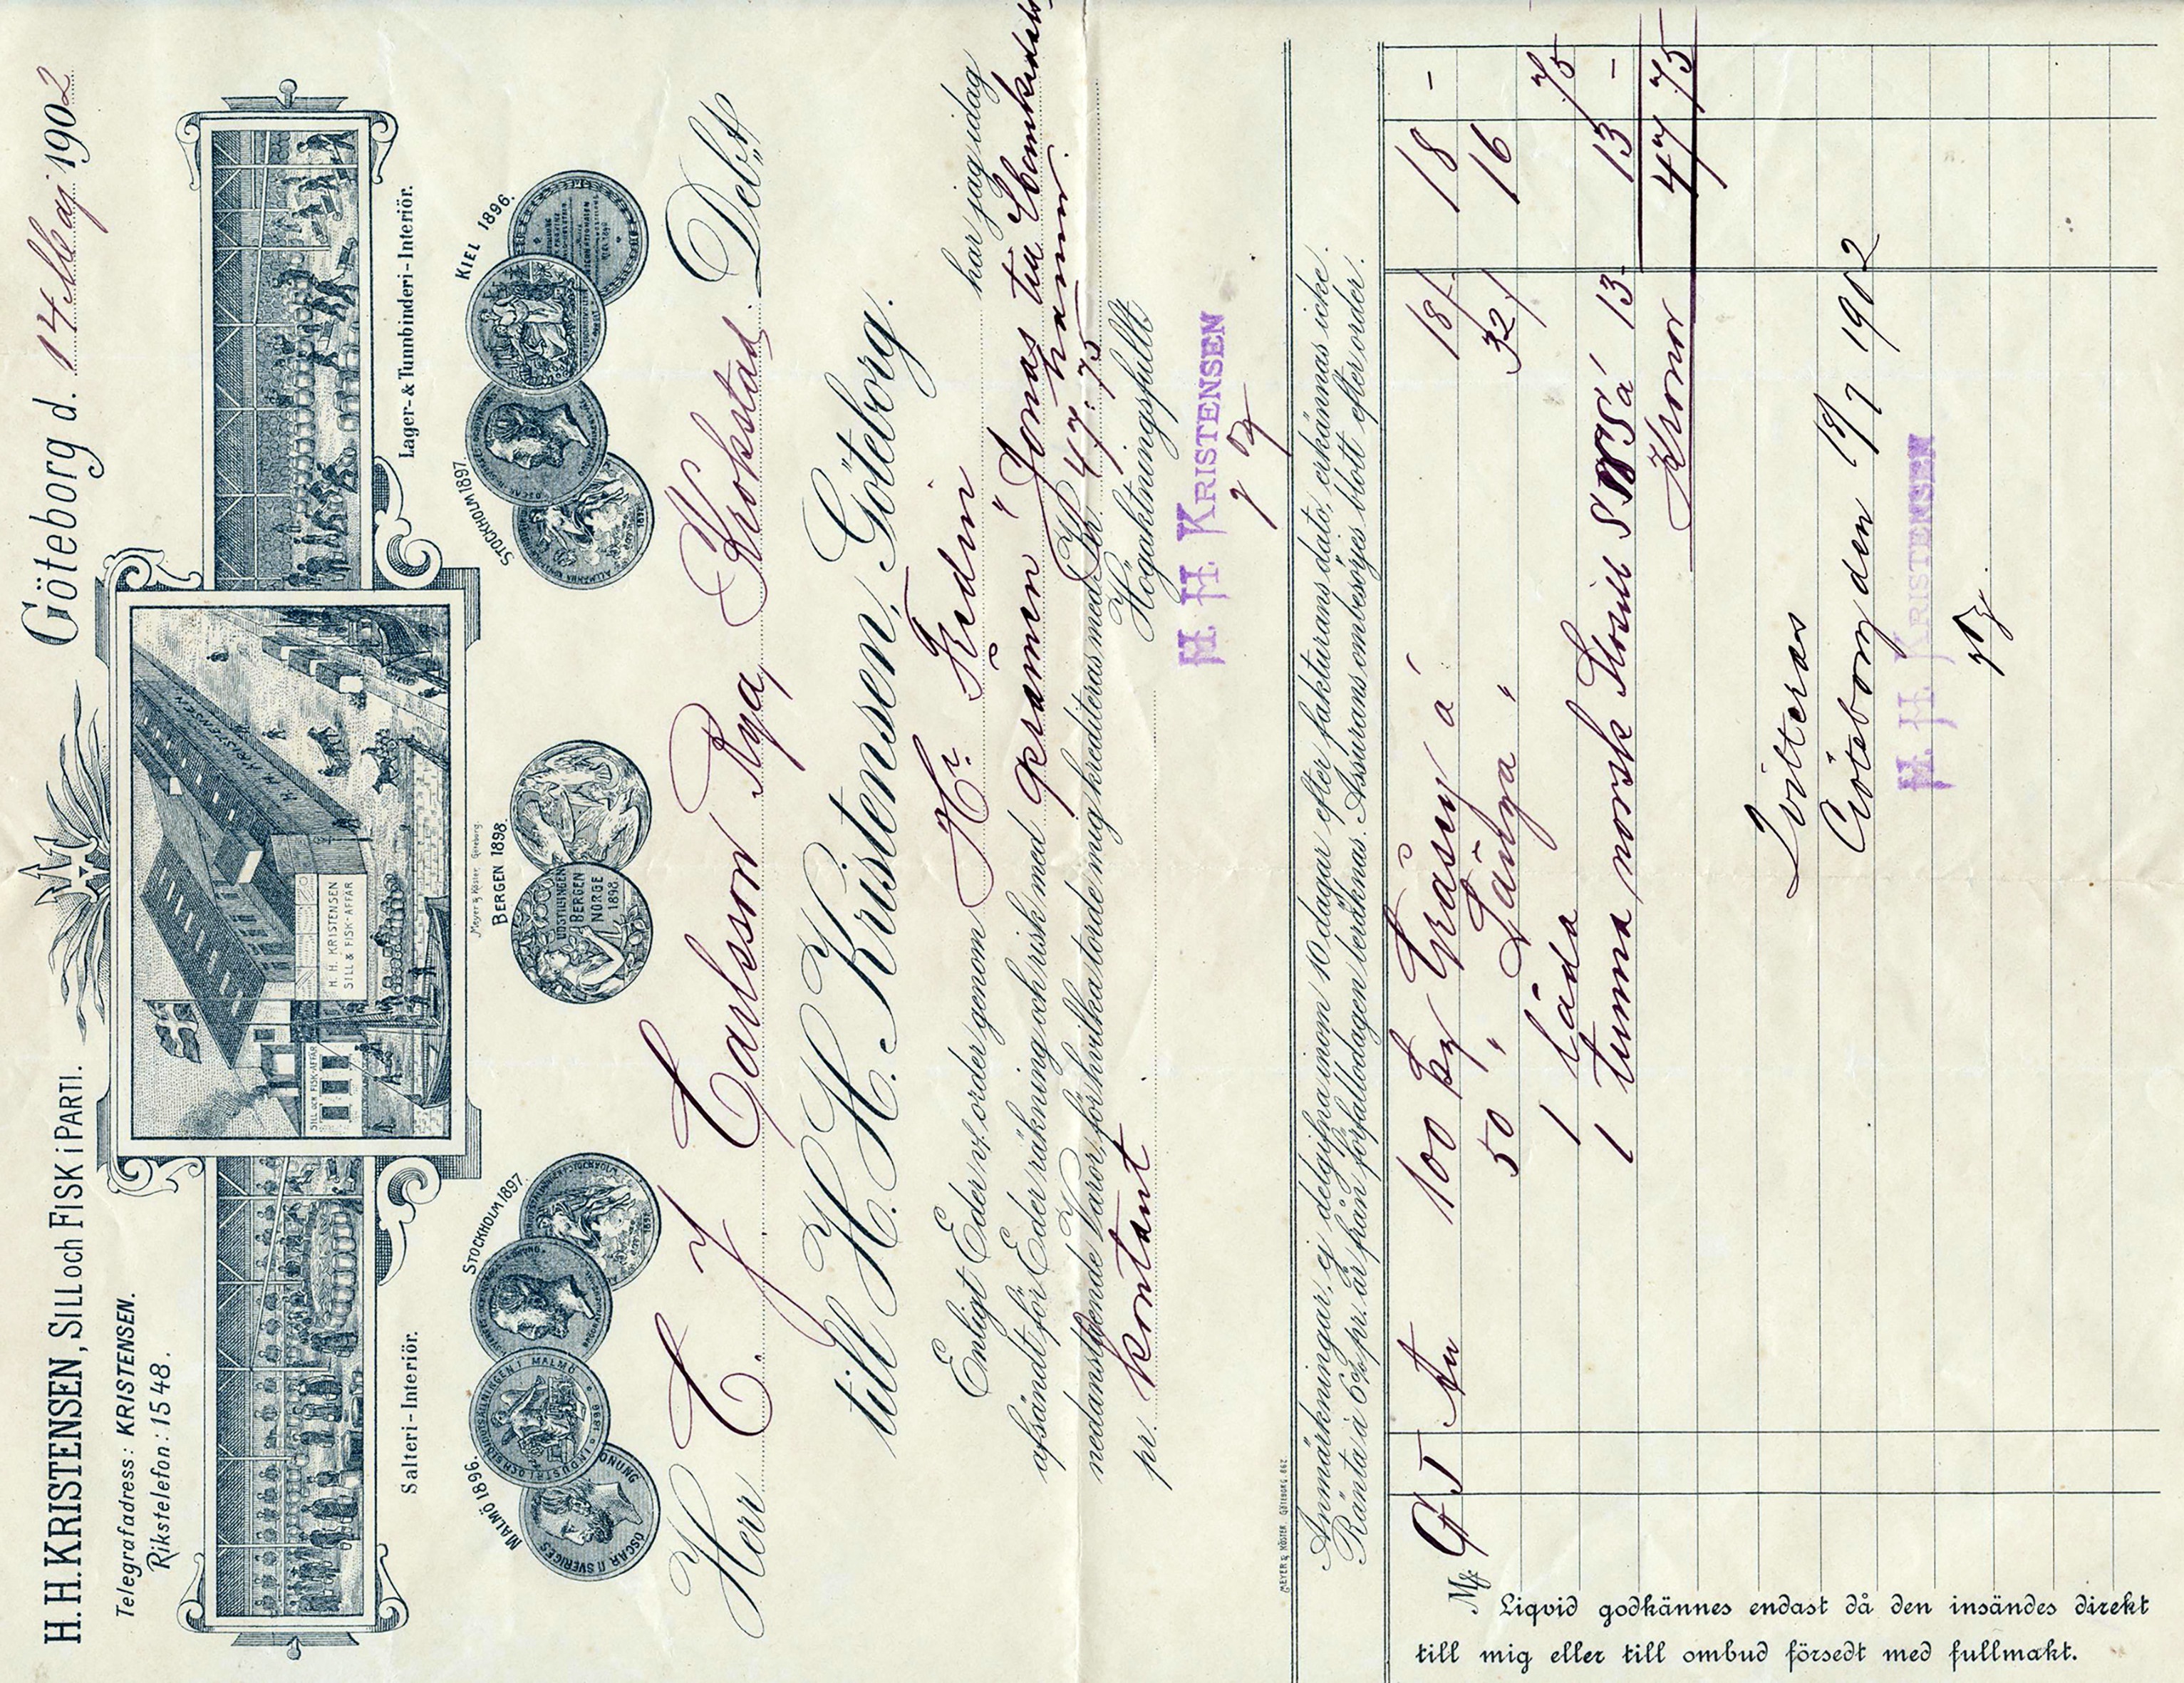 H. H. KRISTENSEN, SILL och FISK i PARTI.
Göteborg d. 14 Maj 1902
Telegrafadress: KRISTENSEN.
Rikstelefon: 1548.
H. H. KRISTENSEN
SILL OCH FISK-AFFÄR
H. H. KRISTENSEN
SILL & FISK-AFFÄR
Salteri-Interiör.
Lager- & Tunnbinderi-Interiör.
Meyer & Köster. Göteborg.
MALMÖ 1896.
STOCKHOLM 1897.
BERGEN 1898.
STOCKHOLM 1897.
KIEL 1896.
OSCAR II SVERIGES
1896
1897
UDSTILLINGEN
BERGEN
NORGE
1898.
1897
KIEL 1896
Herr C. J. Carlsson Rya, Krokstad. Debt
till H. H. Kristensen, Göteborg.
Enligt Eder v/. order genom Hr. Fredin har jag idag
afsändt för Eder räkning och risk med pråmen "Jonas till Munkedals
hamn.
nedanstående Varor, för hvilka torde mig krediteras med Kr. 47:75
pr. kontant
Högaktningsfullt
H. H. KRISTENSEN
MEYER & KÖSTER. GÖTEBORG. 862
Anmärkningar, ej delgifna inom 10 dagar efter fakturans dato, erkännas icke.
Ränta à 6% pr. år från förfallodagen beräknas. Assurans ombesörjes blott efter order.
An 100 kg Gråsey á 18/- 18 -
50 " Långa " 32/ 16
1 låda 75
1 tunna norsk Slosill á 13- 13 -
Kronor 47 75
Qvitteras
Göteborg den 18/7 1902
H. H. KRISTENSEN
Liqvid godkännes endast då den insändes direkt
till mig eller till ombud försedt med fullmakt.